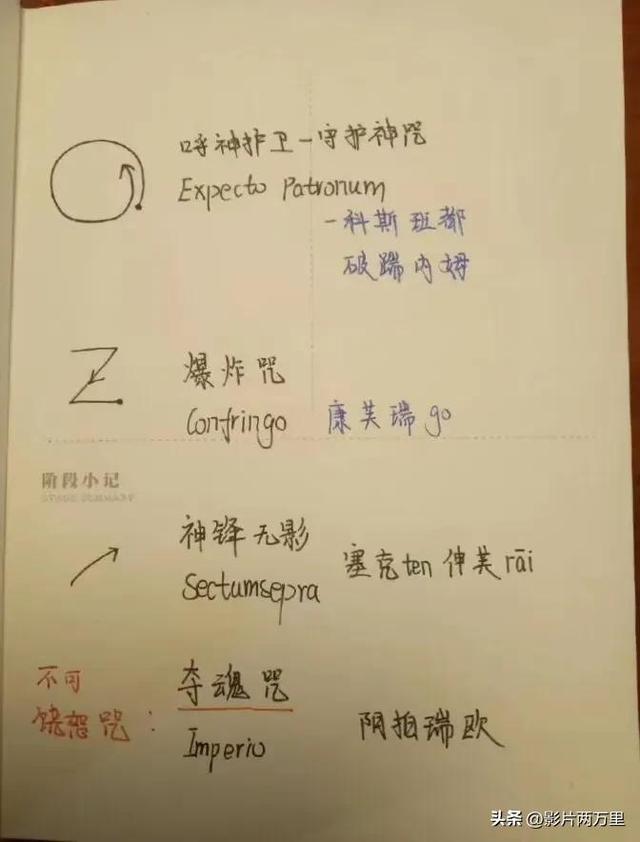 呼神护卫-守护神咒
Expecto Patronum
-科斯班都
破踹内姆
爆炸咒
Confringo 康芙瑞go
阶段小记
STAGE SUMMARY
神锋无影
Sectumsepra 塞克ten伸芙rāi
不可
饶恕咒:
夺魂咒
Imperio 阴拍瑞欧
头条 @影片两万里